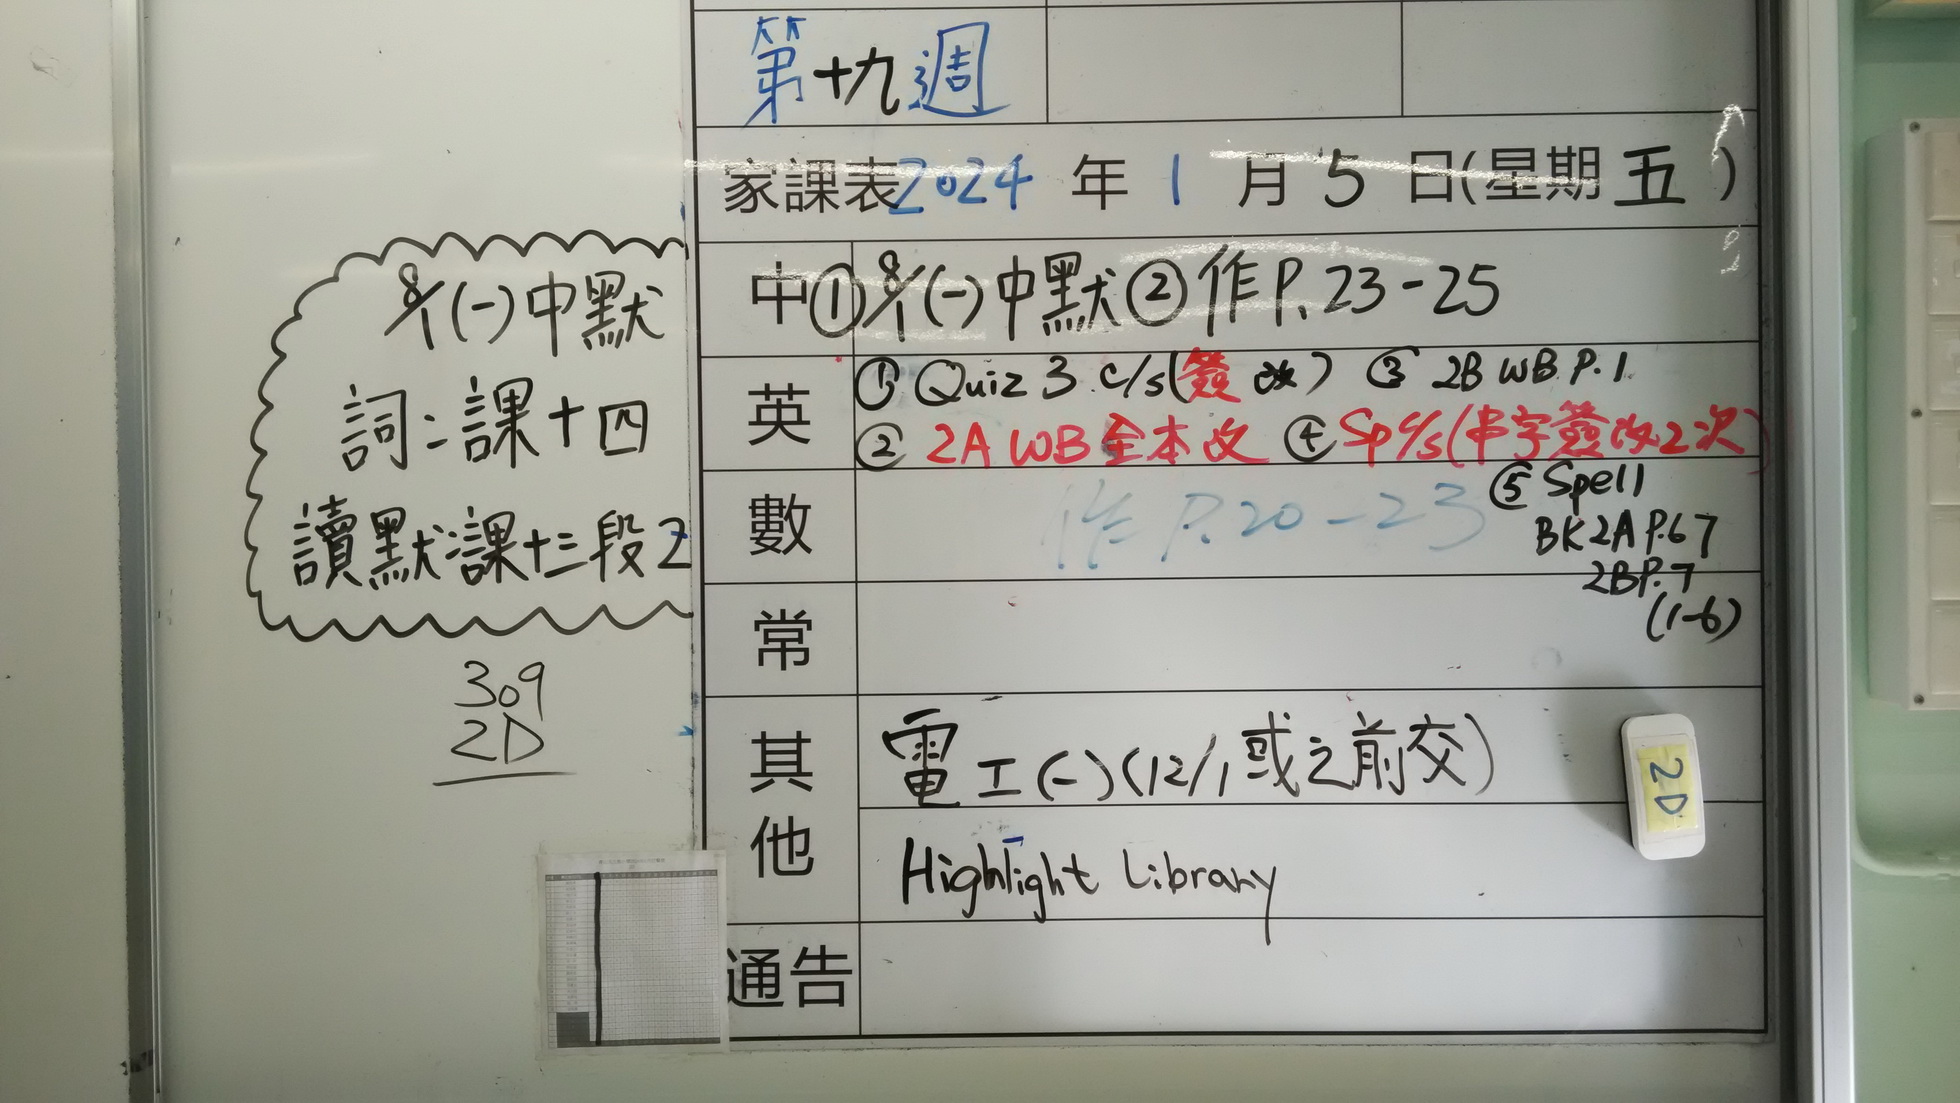 第十九週
家課表2024年1月5日(星期五)
8/1(一)中默
詞：課十四
讀默：課十三段2
309
2D
中 ①8/1(一)中默 ②作P.23-25
英 ① Quiz 3 c/s(簽改) ③ 2B WB P.1
② 2A WB 全本改 ④ Sp c/s(串字簽改2次)
⑤ Spell
BK2A P.67
2B P.7
(1-6)
數 作 P.20-23
常
其他 電工(一)(12/1或之前交)
Highlight Library
2D
通告